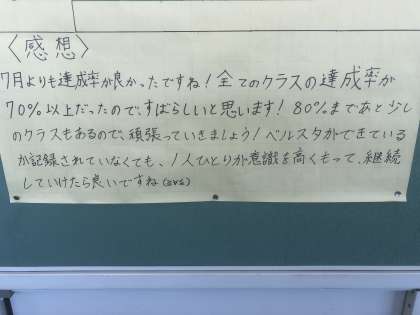 〈感想〉
7月よりも達成率が良かったですね！全てのクラスの達成率が
70%以上だったので、すばらしいと思います！80%まであと少し
のクラスもあるので、頑張っていきましょう！ベルスタができている
か記録されていなくても、1人ひとりが意識を高くもって、継続
していけたら良いですね